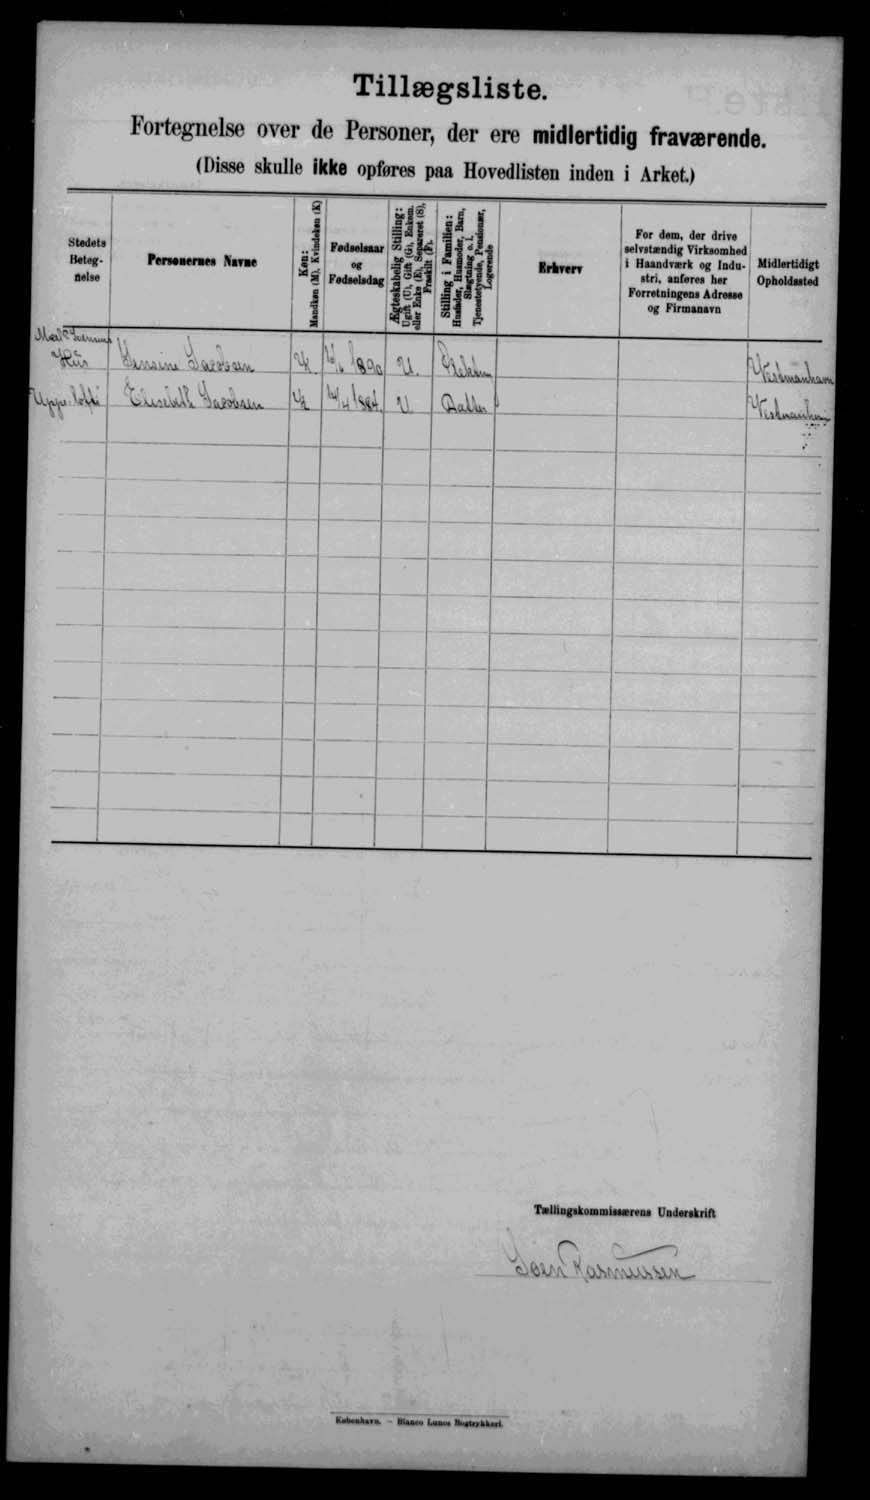 Tillægsliste.
Fortegnelse over de Personer, der ere midlertidig fraværende.
(Disse skulle ikke opføres paa Hovedlisten inden i Arket.)
Stedets Beteg-nelse
Personernes Navne
Køn: Mandkøn (M), Kvindekøn (K)
Fødselsaar og Fødselsdag
Ægteskabelig Stilling: Ugift (U), Gift (G), Enkem. eller Enke (E), Separeret (S), Fraskilt (F).
Stilling i Familien: Husfader, Husmoder, Barn, Slægtning o. l. Tjenestetyende, Pensionær, Logerende
Erhverv
For dem, der drive selvstændig Virksomhed i Haandværk og Indu-stri, anføres her Forretningens Adresse og Firmanavn
Midlertidigt Opholdssted
Hús Jensine Jacobsen K 1890 U. Vestmanhavn
Elisebeth Jacobsen K 1884. U Datter
Tællingskommissærens Underskrift
Joen Rasmussen
København. — Bianco Lunos Bogtrykkeri.